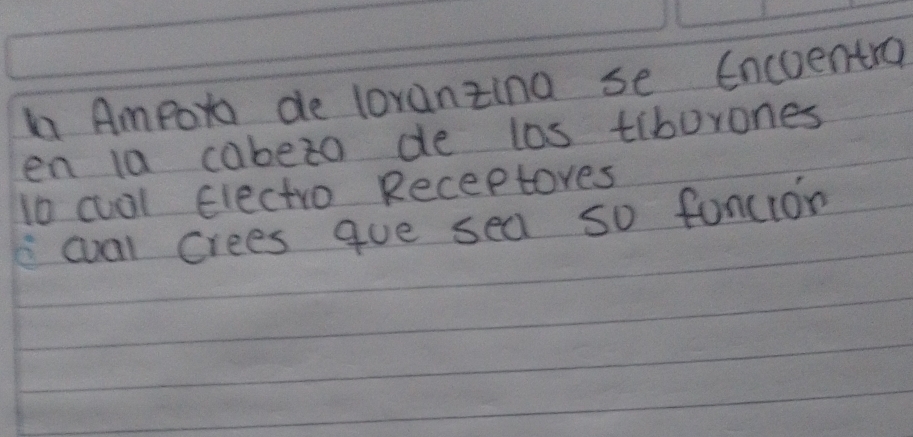 la Ampoya de loranzina se Encuentra
en la cabeza de los tiburones
lo cual Electro Receptores
¿ cual Crees que sea su función